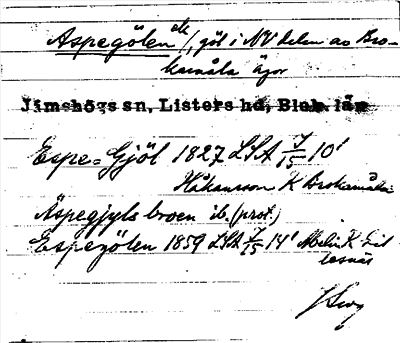 Aspegölen ek/, göl i NV delen av Bro-
kamåla ägor
Jämshögs sn, Listers hd, Blek. län
Espe=Gjöl 1827 LSA 7/15 10¹
Håkansson K Brokamåla
Äspegjyls broen ib. (prot.)
Espegölen 1859 LSA 7/15 14¹ K